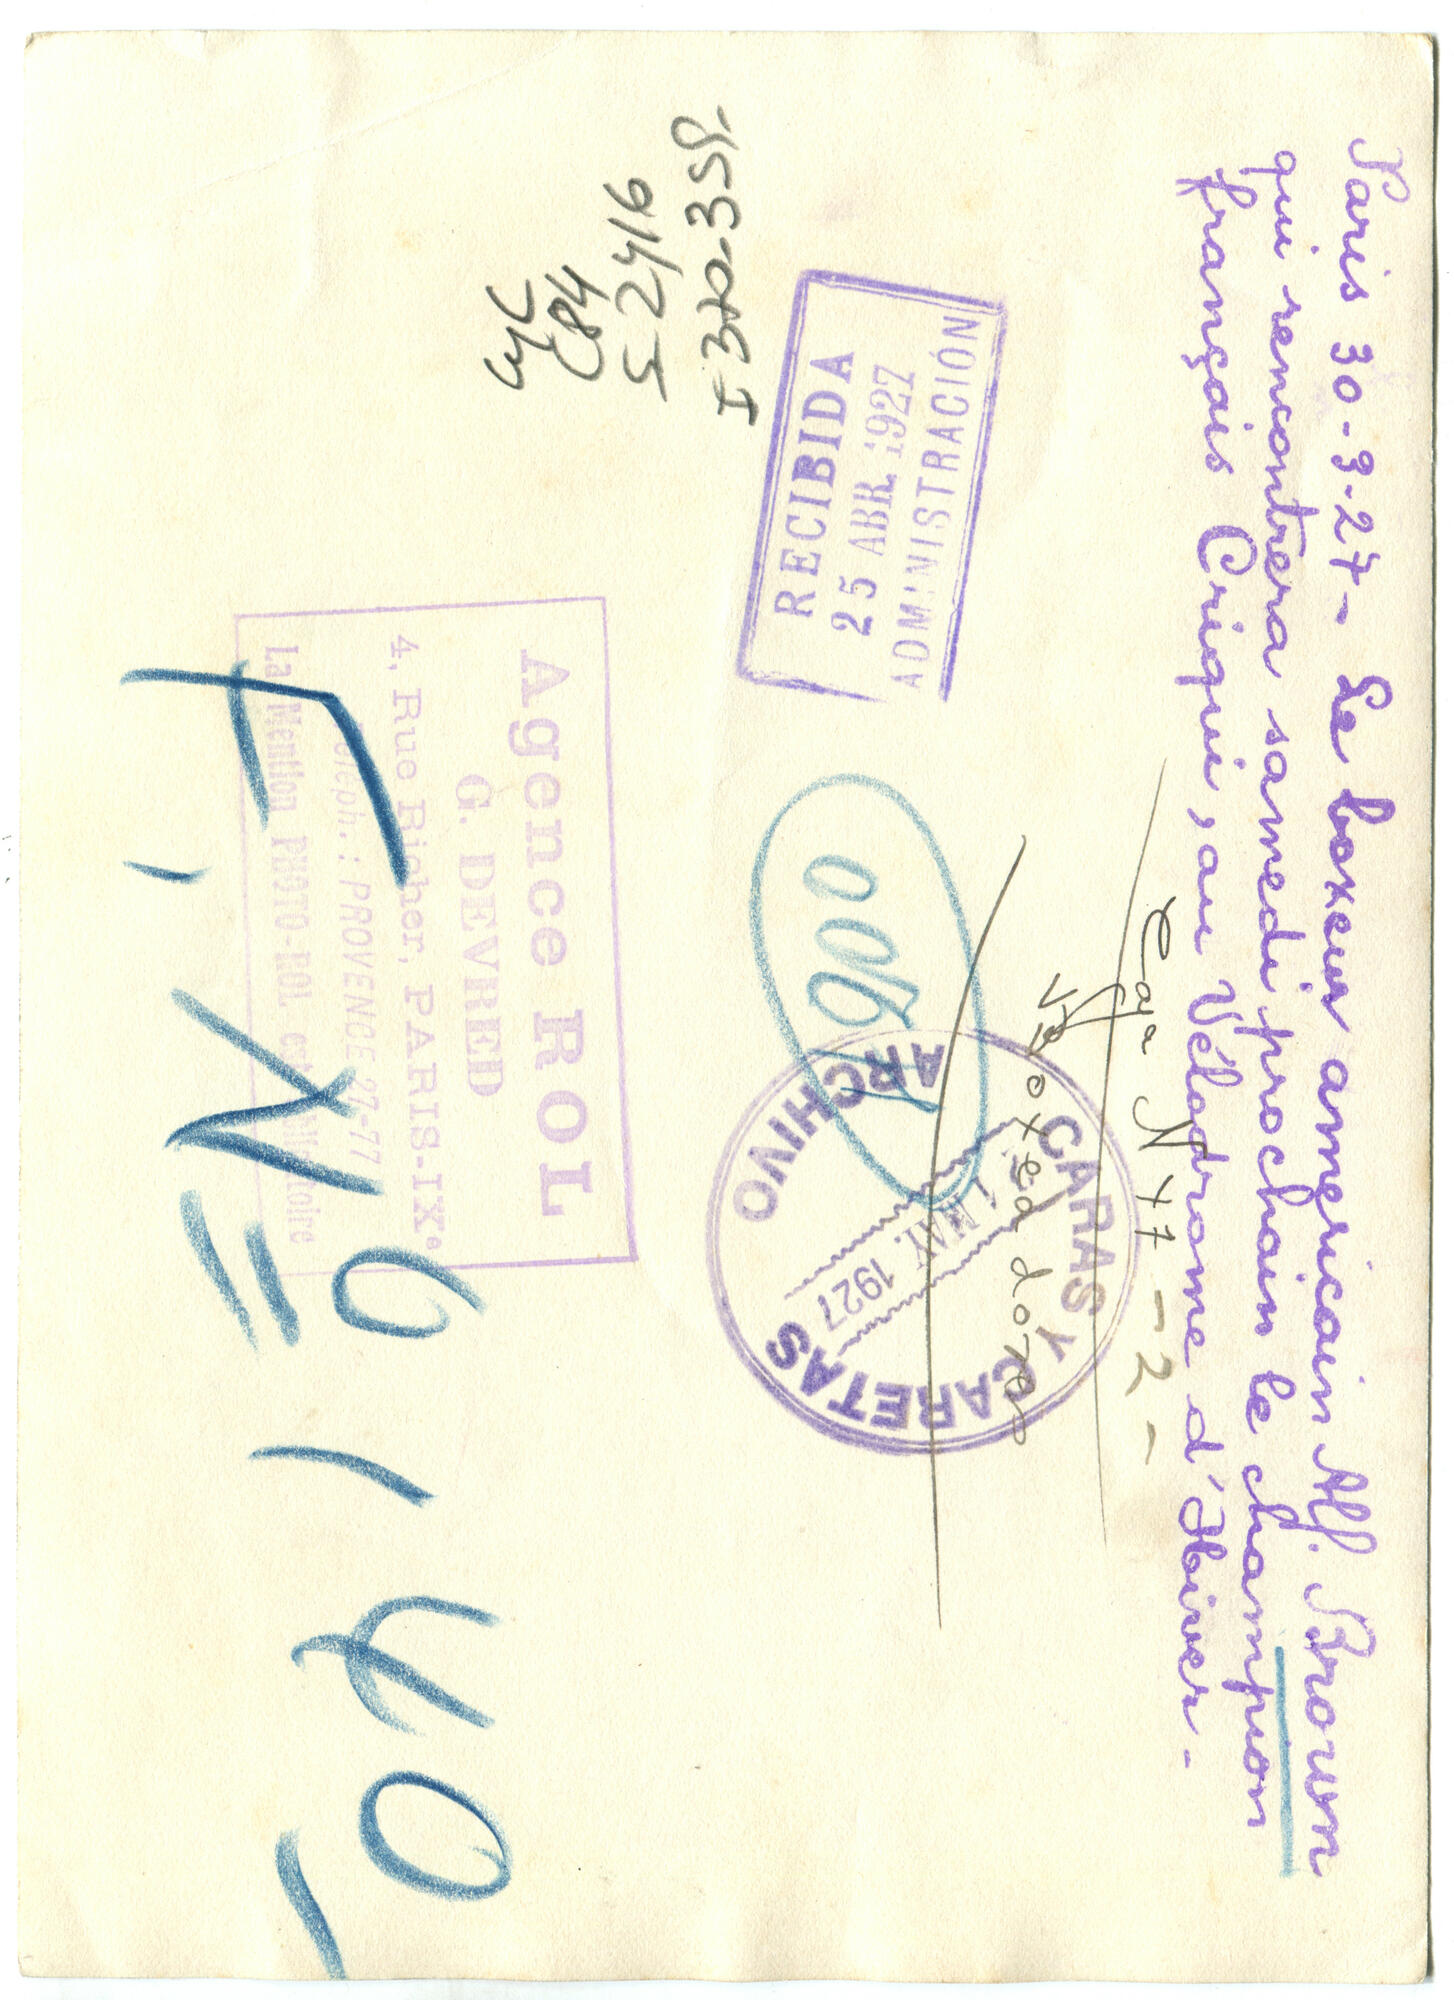 Paris 30-3-27- Le boxeur americain Alf. Brown
qui rencontrera samedi prochain le champion
français Criqui, au Vélodrome d'Hiver-
Caja N 47 -2-
Boxeadores
RECIBIDA
25 ABR. 1927
ADMINISTRACIÓN
900
CARAS Y CARETAS
ARCHIVO
MAY. 1927
I 320-3SP.
S-2416
C84
CyC
Agence ROL
G. DEVRED
4, Rue Richer, PARIS-IX.
Téleph.: PROVENCE 27-77
La Mention PHOTO-ROL est obligatoire